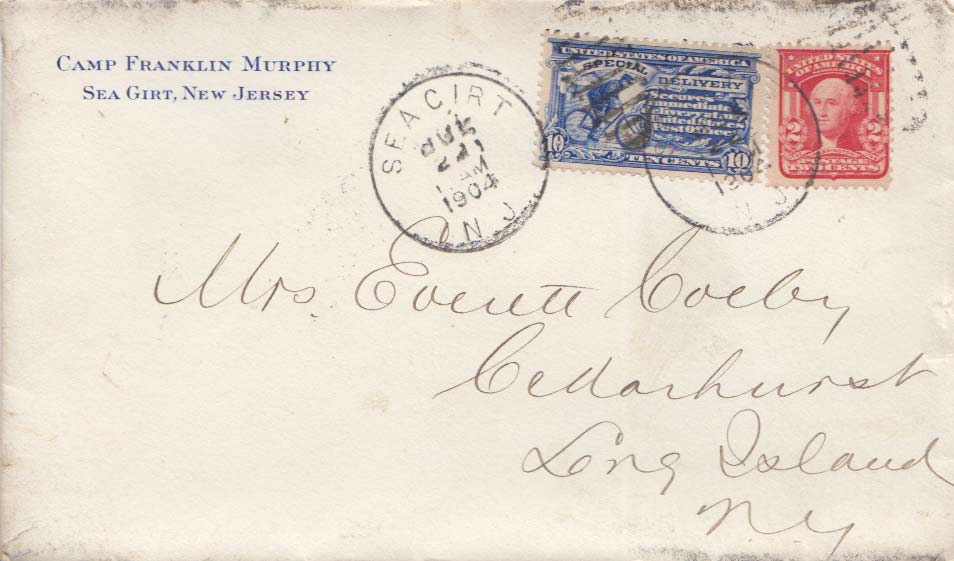 CAMP FRANKLIN MURPHY
SEA GIRT, NEW JERSEY
SEA GIRT
JUL
24
AM
1904
N J
UNITED STATES OF AMERICA
SPECIAL DELIVERY
Secures
immediate
delivery at any
United States
Post Office
10 TEN CENTS 10
1904
N J
UNITED STATES
OF AMERICA
2 2
POSTAGE
TWO CENTS
Mrs. Everett Colby
Cedarhurst
Long Island
N.Y.